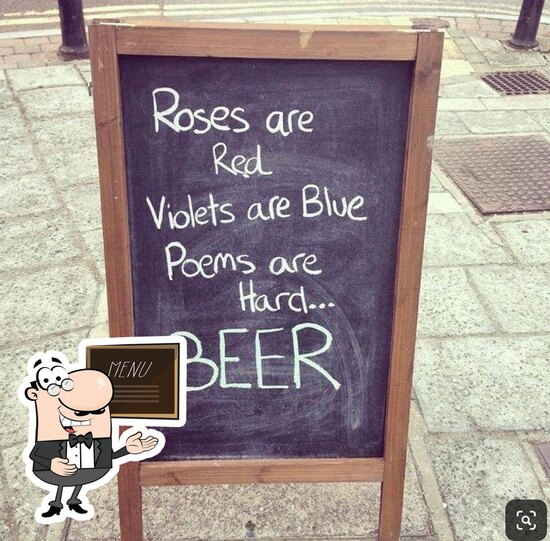 Roses are
Red
Violets are Blue
Poems are
Hard...
BEER
MENU